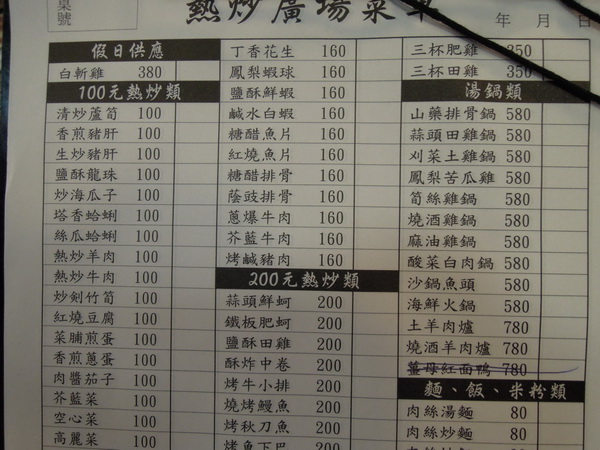 桌號
熱炒廣場菜單
年 月 日
假日供應
白斬雞 380
100元熱炒類
清炒蘆筍 100
香煎豬肝 100
生炒豬肝 100
鹽酥龍珠 100
炒海瓜子 100
塔香蛤蜊 100
絲瓜蛤蜊 100
熱炒羊肉 100
熱炒牛肉 100
炒劍竹筍 100
紅燒豆腐 100
菜脯煎蛋 100
香煎蔥蛋 100
肉醬茄子 100
芥藍菜 100
空心菜 100
高麗菜 100
丁香花生 160
鳳梨蝦球 160
鹽酥鮮蝦 160
鹹水白蝦 160
糖醋魚片 160
紅燒魚片 160
糖醋排骨 160
蔭豉排骨 160
蔥爆牛肉 160
芥藍牛肉 160
烤鹹豬肉 160
200元熱炒類
蒜頭鮮蚵 200
鐵板肥蚵 200
鹽酥田雞 200
酥炸中卷 200
烤牛小排 200
燒烤鰻魚 200
烤秋刀魚 200
烤魚下巴 200
三杯肥雞 350
三杯田雞 350
湯鍋類
山藥排骨鍋 580
蒜頭田雞鍋 580
刈菜土雞鍋 580
鳳梨苦瓜雞 580
筍絲雞鍋 580
燒酒雞鍋 580
麻油雞鍋 580
酸菜白肉鍋 580
沙鍋魚頭 580
海鮮火鍋 580
土羊肉爐 780
燒酒羊肉爐 780
薑母紅面鴨 780
麵、飯、米粉類
肉絲湯麵 80
肉絲炒麵 80